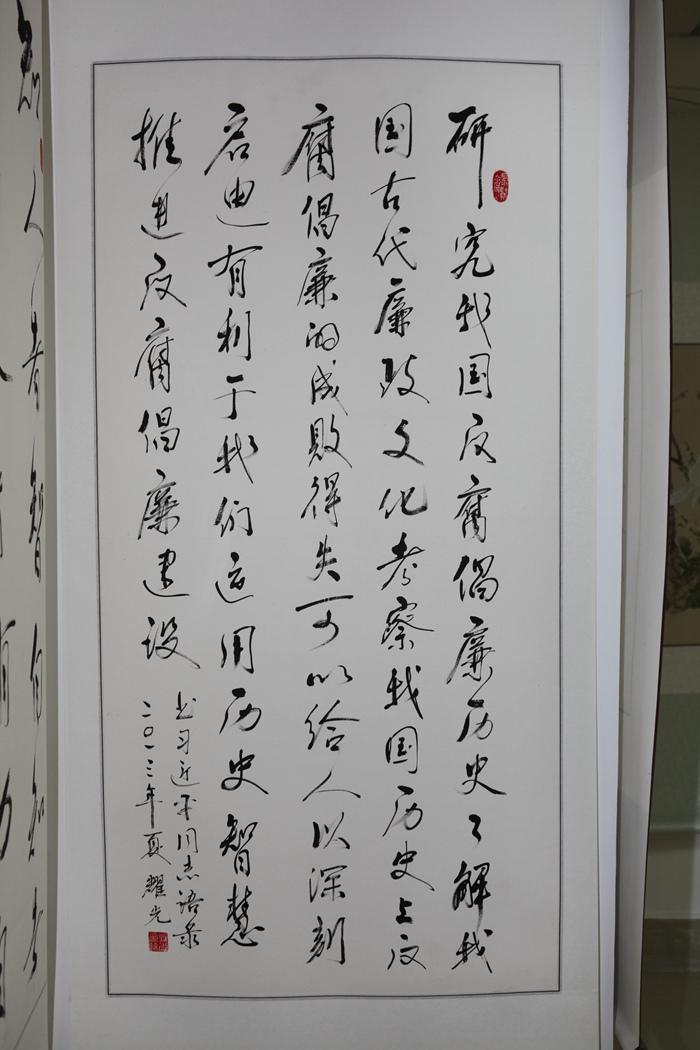 研究我国反腐倡廉历史了解我
国古代廉政文化考察我国历史上反
腐倡廉的成败得失可以给人以深刻
启迪有利于我们运用历史智慧
推进反腐倡廉建设
书习近平同志语录
二〇一三年夏耀光
人者智自知者